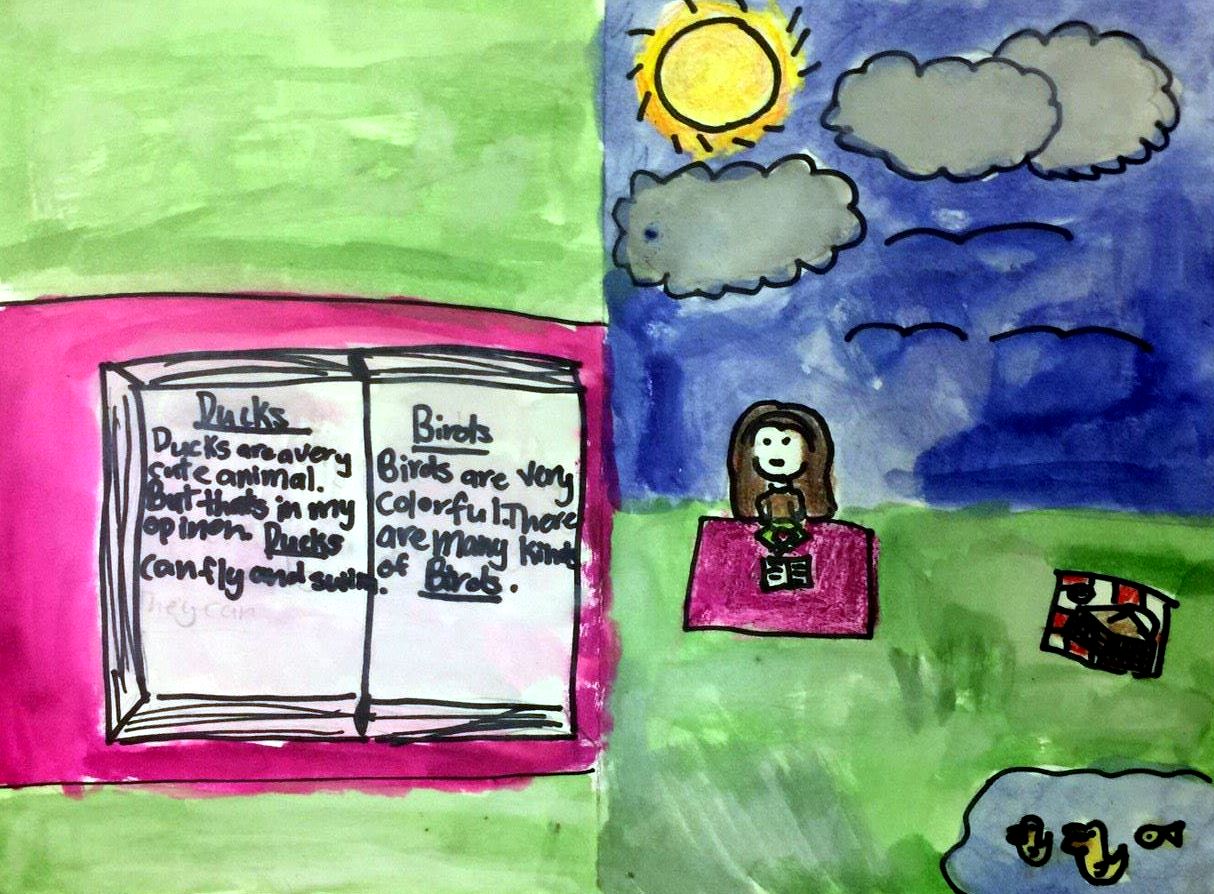 Ducks
Ducks are a very
cute animal.
But thats in my
opinon. Ducks
can fly and swim.
They can
Birds
Birds are very
colorful. There
are many kinds
of Birds.